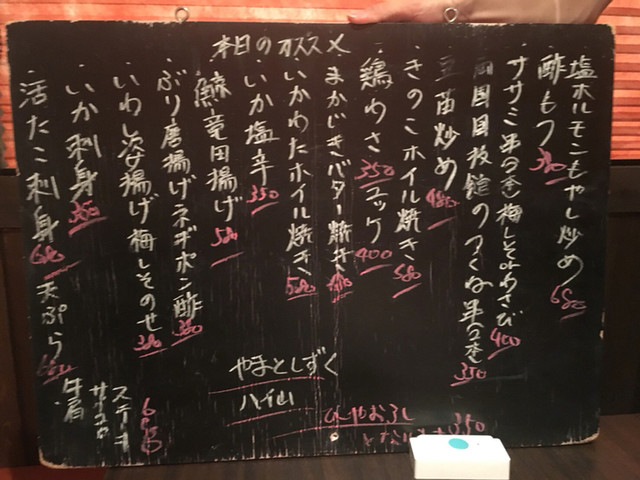 本日のオススメ
塩ホルモンもやし炒め 680
酢もつ 380
ササミ串2本梅しそorわさび 400
両国国技館のつくね串2本 350
豆苗炒め 480
きのこホイル焼き 580
鶏わさ 350 ユッケ 400
まかじきバター焼き
いかわたホイル焼き 580
いか塩辛 350
鯨竜田揚げ 580
ぶり唐揚げネギポン酢 380
いわし姿揚げ梅しそのせ 380
いか刺身 380
活たこ刺身 680 天ぷら 680
牛肩
サイコロ
ステーキ 680
やまとしずく
八仙
ひやおろし 350